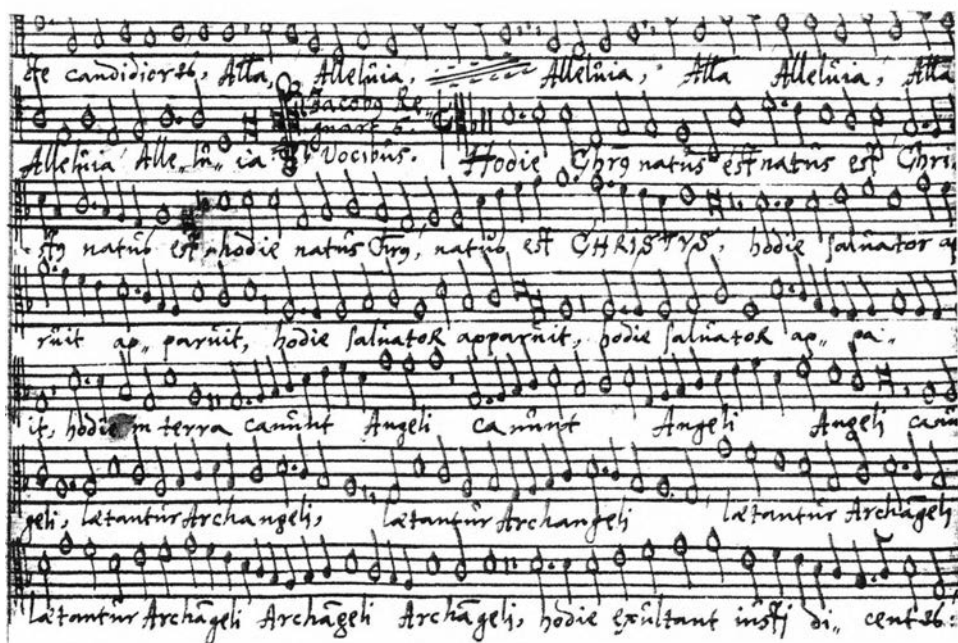 te candidior℮s, Alla, Alleluia, Alleluia, Alla Alleluia, Alla
Jacobꝰ Re-
gnart 5.
Alleluia Alle„lu„ia Vocibus. Hodie Chrꝰ natus est natus est Chri-
stꝰ natus est hodie natus Chrꝰ, natus est CHRISTVS, hodie saluator ap
ruit ap„paruit, hodie saluatoR apparuit, hodie saluatoR ap„pa-
it, hodie in terra canunt Angeli canunt Angeli Angeli canu
geli, lætantur Archangeli, lætantur Archangeli lætantur Archāgeli
lætantur Archāgeli Archāgeli Archāgeli, hodie exultant iusti di„cent℮s: